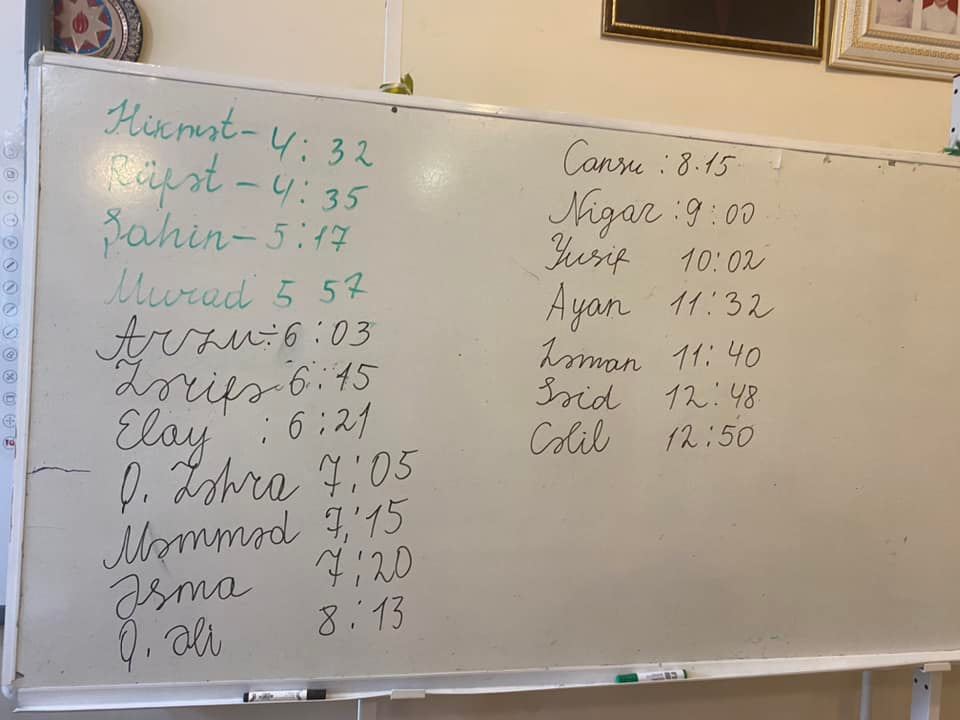 Hikmət - 4:32
Rüfət - 4:35
Şahin - 5:17
Murad 5 57
Arzu÷6:03
Zərifə 6:15
Elay : 6:21
Q. Zəhra 7:05
Məmməd 7:15
Əsma 7:20
Q. Əli 8:13
Cansu : 8.15
Nigar : 9:00
Yusif 10:02
Ayan 11:32
Zəman 11:40
Səid 12:48
Cəlil 12:50